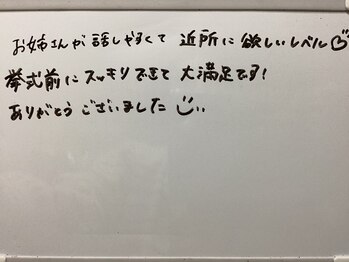 お姉さんが話しやすくて 近所に欲しいレベル
挙式前にスッキリできて 大満足です!
ありがとうございました